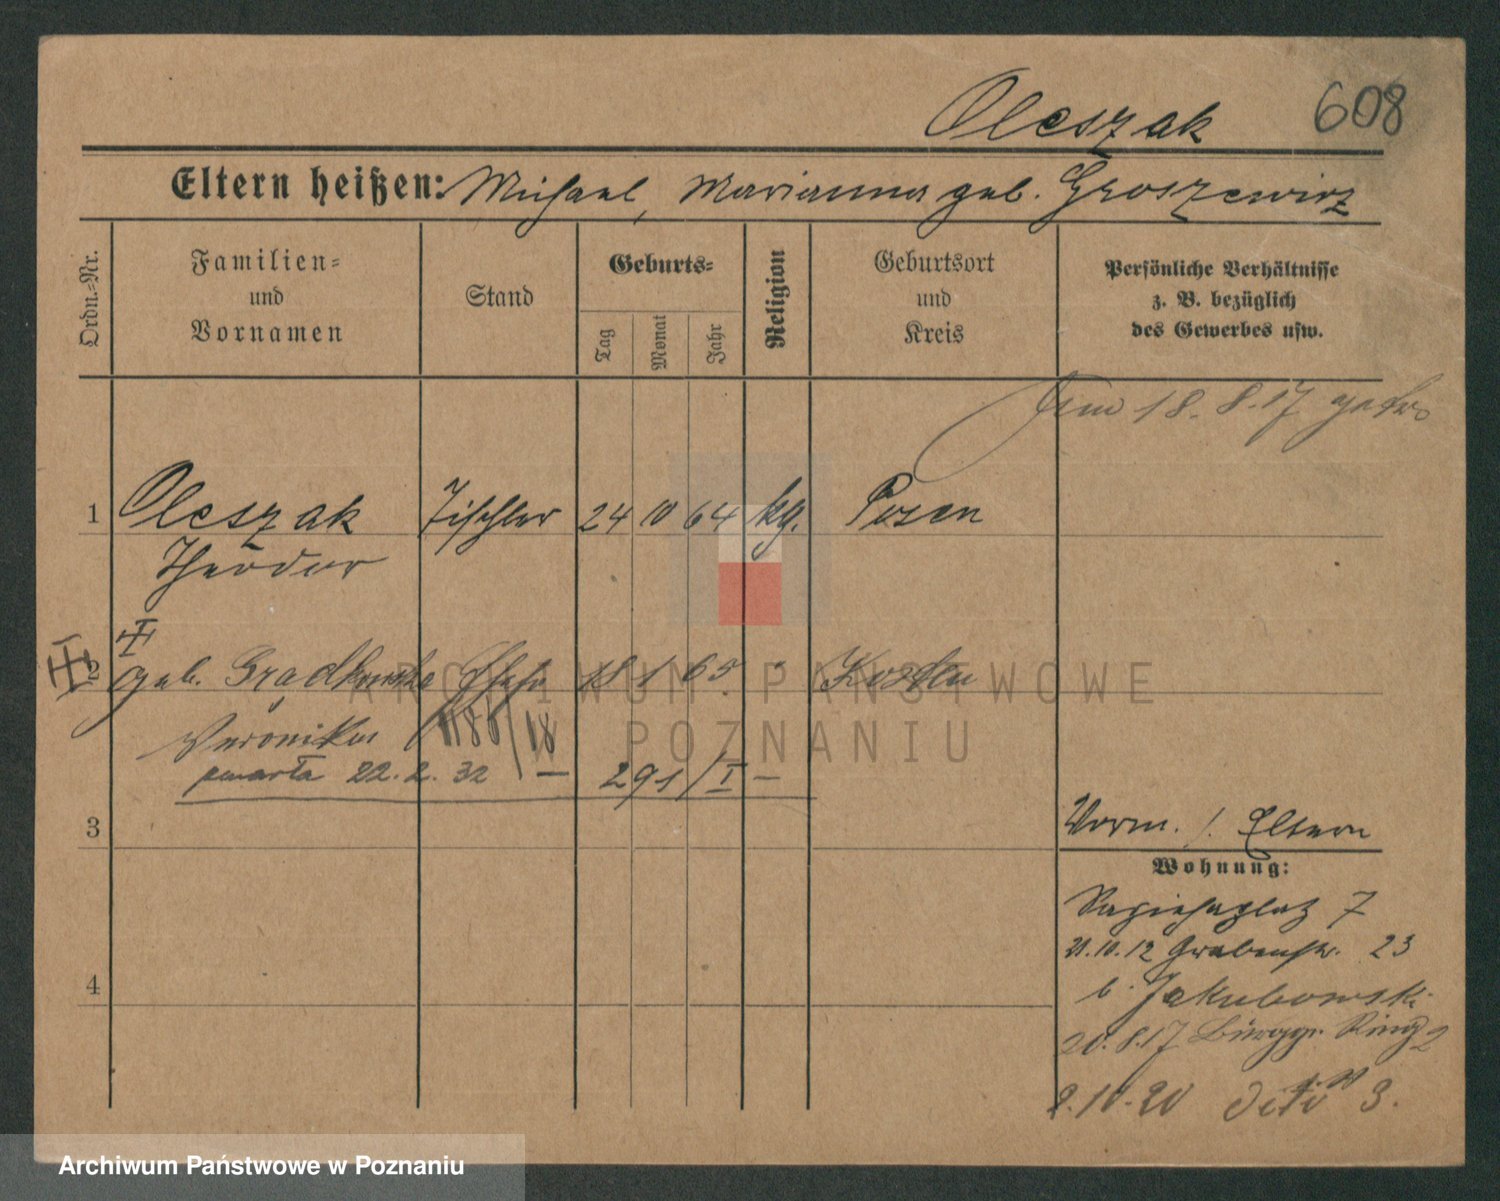 Oleszak 608
Eltern heißen: Michael, Marianna geb. Groszewicz
Ordn.-Nr.
Familien-
und
Vornamen
Stand
Geburts-
Tag
Monat
Jahr
Religion
Geburtsort
und
Kreis
Persönliche Verhältnisse
z. B. bezüglich
des Gewerbes usw.
18.8.17
1 Oleszak Tischler 24 10 64 kg. Posen
Theodor
2 geb. Ehefr. 18 1 65
Veronika
zmarła 22.2.32 — 291/I —
3
Vorm. s. Eltern
Wohnung:
Sapiehaplatz 7
21.10.12 Grabenstr. 23
b. Jakubowski
20.8.17 Ring 2
2.10.20 dito 3.
4
ARCHIWUM PAŃSTWOWE
W POZNANIU
Archiwum Państwowe w Poznaniu